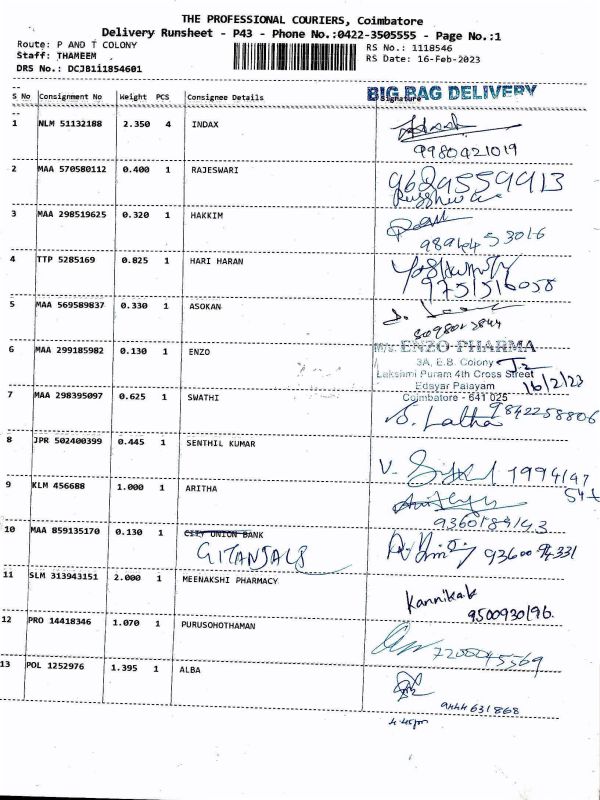 THE PROFESSIONAL COURIERS, Coimbatore
Delivery Runsheet - P43 - Phone No.:0422-3505555 - Page No.:1
Route: P AND T COLONY
Staff: THAMEEM
DRS No.: DCJB111854601
RS No.: 1118546
RS Date: 16-Feb-2023
BIG BAG DELIVERY
S No Consignment No Weight PCS Consignee Details Signature
1 NLM 51132188 2.350 4 INDAX
9980421019
2 MAA 570580112 0.400 1 RAJESWARI
9629559913
3 MAA 298519625 0.320 1 HAKKIM
9894453016
4 TTP 5285169 0.825 1 HARI HARAN
9751516058
5 MAA 569589837 0.330 1 ASOKAN
6 MAA 299185982 0.130 1 ENZO
M/s. ENZO PHARMA
3A, E.B. Colony
Lakshmi Puram 4th Cross Street
Edayar Palayam
16/2/23
Coimbatore - 641 025
7 MAA 298395097 0.625 1 SWATHI
S. Latha 9842258806
8 JPR 502400399 0.445 1 SENTHIL KUMAR
9 KLM 456688 1.000 1 ARITHA
10 MAA 859135170 0.130 1 CITY UNION BANK
11 SLM 313943151 2.000 1 MEENAKSHI PHARMACY
Kannika.k
9500930196.
12 PRO 14418346 1.070 1 PURUSOHOTHAMAN
7200045569
13 POL 1252976 1.395 1 ALBA
9444631868
4:45pm